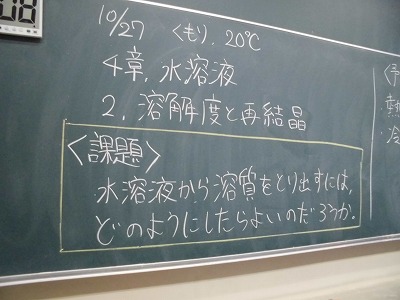 08
10/27 くもり, 20℃
4章, 水溶液
2, 溶解度と再結晶
<課題>
水溶液から溶質をとり出すには,
どのようにしたらよいのだろうか.
<予
・熱
・冷